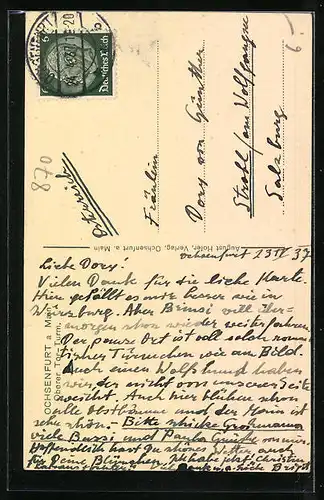 Deutsches Reich
6
870
Österreich
Fräulein
Dory von Günther
Strobl / am Wolfgangsee
Salzburg
6.-
August Hofer, Verlag, Ochsenfurt a. Main
OCHSENFURT a. Main
Oberer Tor-Turm.
Ochsenfurt 23 IV 37
Liebe Dory!
Vielen Dank für die liebe Karte.
Hier gefällt es mir besser wie in
Würzburg. Aber will über-
morgen schon wieder weiterfahren
Der ganze Ort ist voll solch roman-
tischer Türmchen wie am Bild.
Auch einen Wolfshund haben
wir, der nicht von unserer Seite
weicht. Auch hier blühen schon
alle Obstbäume und der Main ist
sehr schön. - Bitte schicke Grossmama
viele Bussi und Grüße von mir.
Hoffentlich hast Du schönes Wetter, auch
für Deine Blümchen.